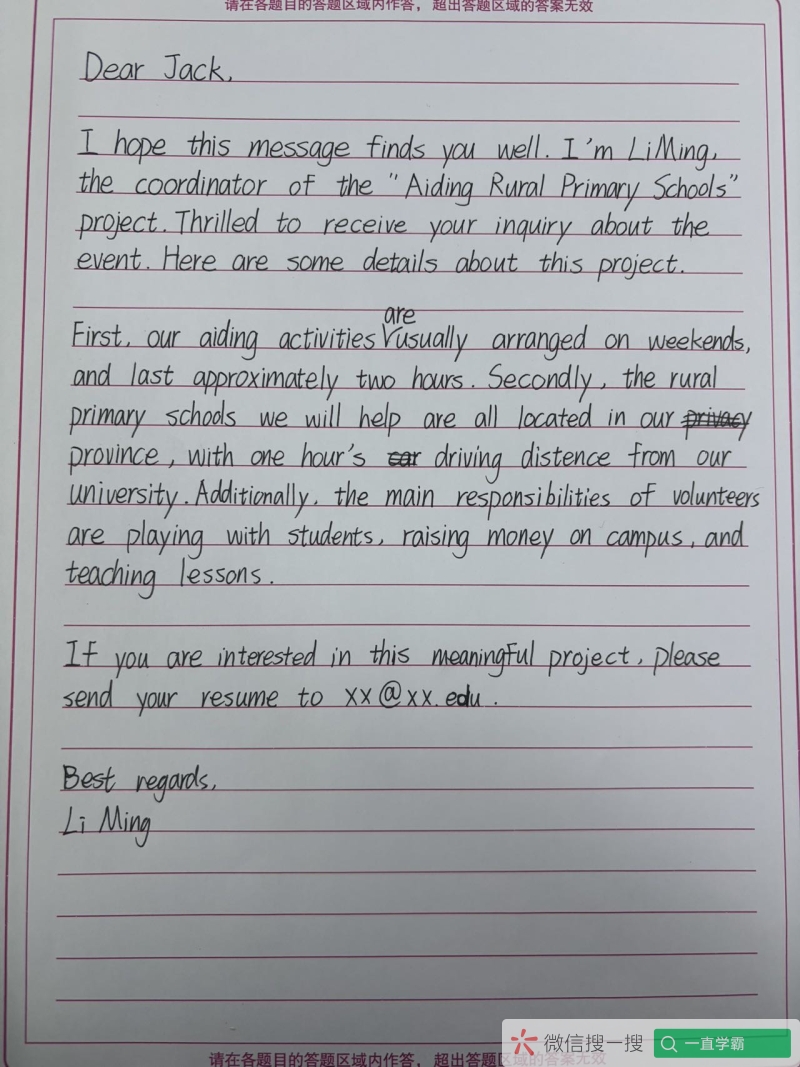 请在各题目的答题区域内作答，超出答题区域的答案无效
Dear Jack,
I hope this message finds you well. I'm Li Ming,
the coordinator of the "Aiding Rural Primary Schools"
project. Thrilled to receive your inquiry about the
event. Here are some details about this project.
are
First, our aiding activities usually arranged on weekends,
and last approximately two hours. Secondly, the rural
primary schools we will help are all located in our privacy
province, with one hour's car driving distence from our
university. Additionally, the main responsibilities of volunteers
are playing with students, raising money on campus, and
teaching lessons.
If you are interested in this meaningful project, please
send your resume to xx@xx.edu.
Best regards,
Li Ming
微信搜一搜 一直学霸
请在各题目的答题区域内作答，超出答题区域的答案无效